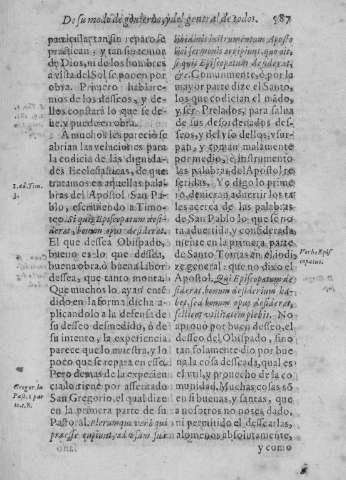 De su modo de gouierno, y del general de todos. 587
particular, tan sin reparo se
practican, y tan sin temor
de Dios, ni de los hombres
a vista del Sol se ponen por
obra. Primero hablare-
mos de los desseos, y de-
llos constarà lo que se de-
be, y puede en obra.
A muchos les pareciò se
abrian las velaciones para
la codicia de las dignida-
des Ecclesiasticas, de que
tratamos en aquellas pala-
bras del Apostol San Pa-
blo, escriuiendo a Timo-
teo. Si quis Episcopatum desi-
derat, bonum opus desiderat.
El que dessea Obispado,
bueno es lo que dessea,
buena obra, ò buena labor
dessea, que tanto monta.
Que muchos lo ayan enté-
dido en la forma dicha a-
plicandolo a la defensa de
su desseo desmedido, ò de
su intento, y la experiencia
parece que lo muestra, y lo
poco que se repara en esse.
Pero demas de la experien-
cia lo tiene por assentado
San Gregorio, el qual dize
en la primera parte de su
Pastoral. Plerumque verò qui
praesse cupiunt, ad vsum suæ
1. ad Tim.
3.
Gregor. in
Past. 1. par
te. c. 8.
libidinis instrumentum Aposto
lici sermonis arripiunt, quo ait,
si quis Episcopatum desiderat,
&c. Comunmente, ò por la
mayor parte dize el Santo,
los que codician el mádo,
y ser Prelados, para salua
de sus desordenados des-
seos, y del vso dellos, vsur-
pan, y toman malamente
por medio, è instrumento
las palabras del Apostol re
feridas. Y o digo lo prime
ro, deuieran aduertir los ta
les acerca de las palabras
de San Pablo lo que se no-
ta aduertida, y considerada
mente en la primera parte
de Santo Tomas en el indi-
ze general: que no dixo el
Apostol: Qui Episcopatum de-
siderat, bonum desiderium ha-
bet, seu bonum opus desiderat,
scilicet vtilitatem plebis. No
aprouò por buen desseo, el
desseo del Obispado, sino
tan solamente dio por bue-
na la cosa desseada, qual es
el vtil, y prouecho de la co
munidad. Muchas cosas so
en si buenas, y santas, que
a nosotros no nos es dado,
ni permitido el dessearlas,
alomenos absolutamente,
y como
Verbo Epis
copatus.